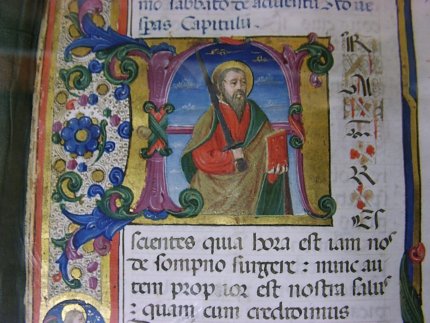 mo sabbato de aduentu Ad ve
spas Capitulu.
R
A
T
R
ES
scientes quia hora est iam nos
de sompno surgere : nunc au
tem propior est nostra salus
: quam cum credidimus